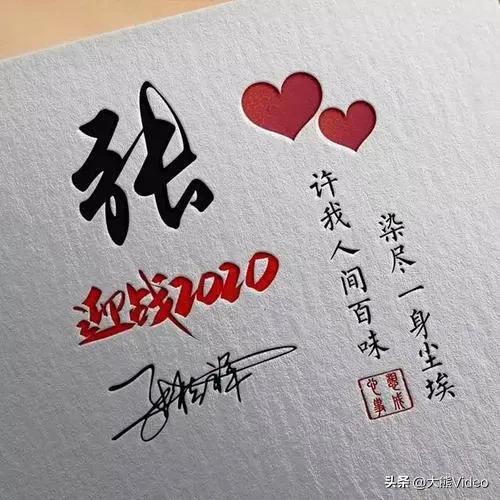 张
迎战2020
染尽一身尘埃
许我人间百味
心想事成
头条 @大熊Video